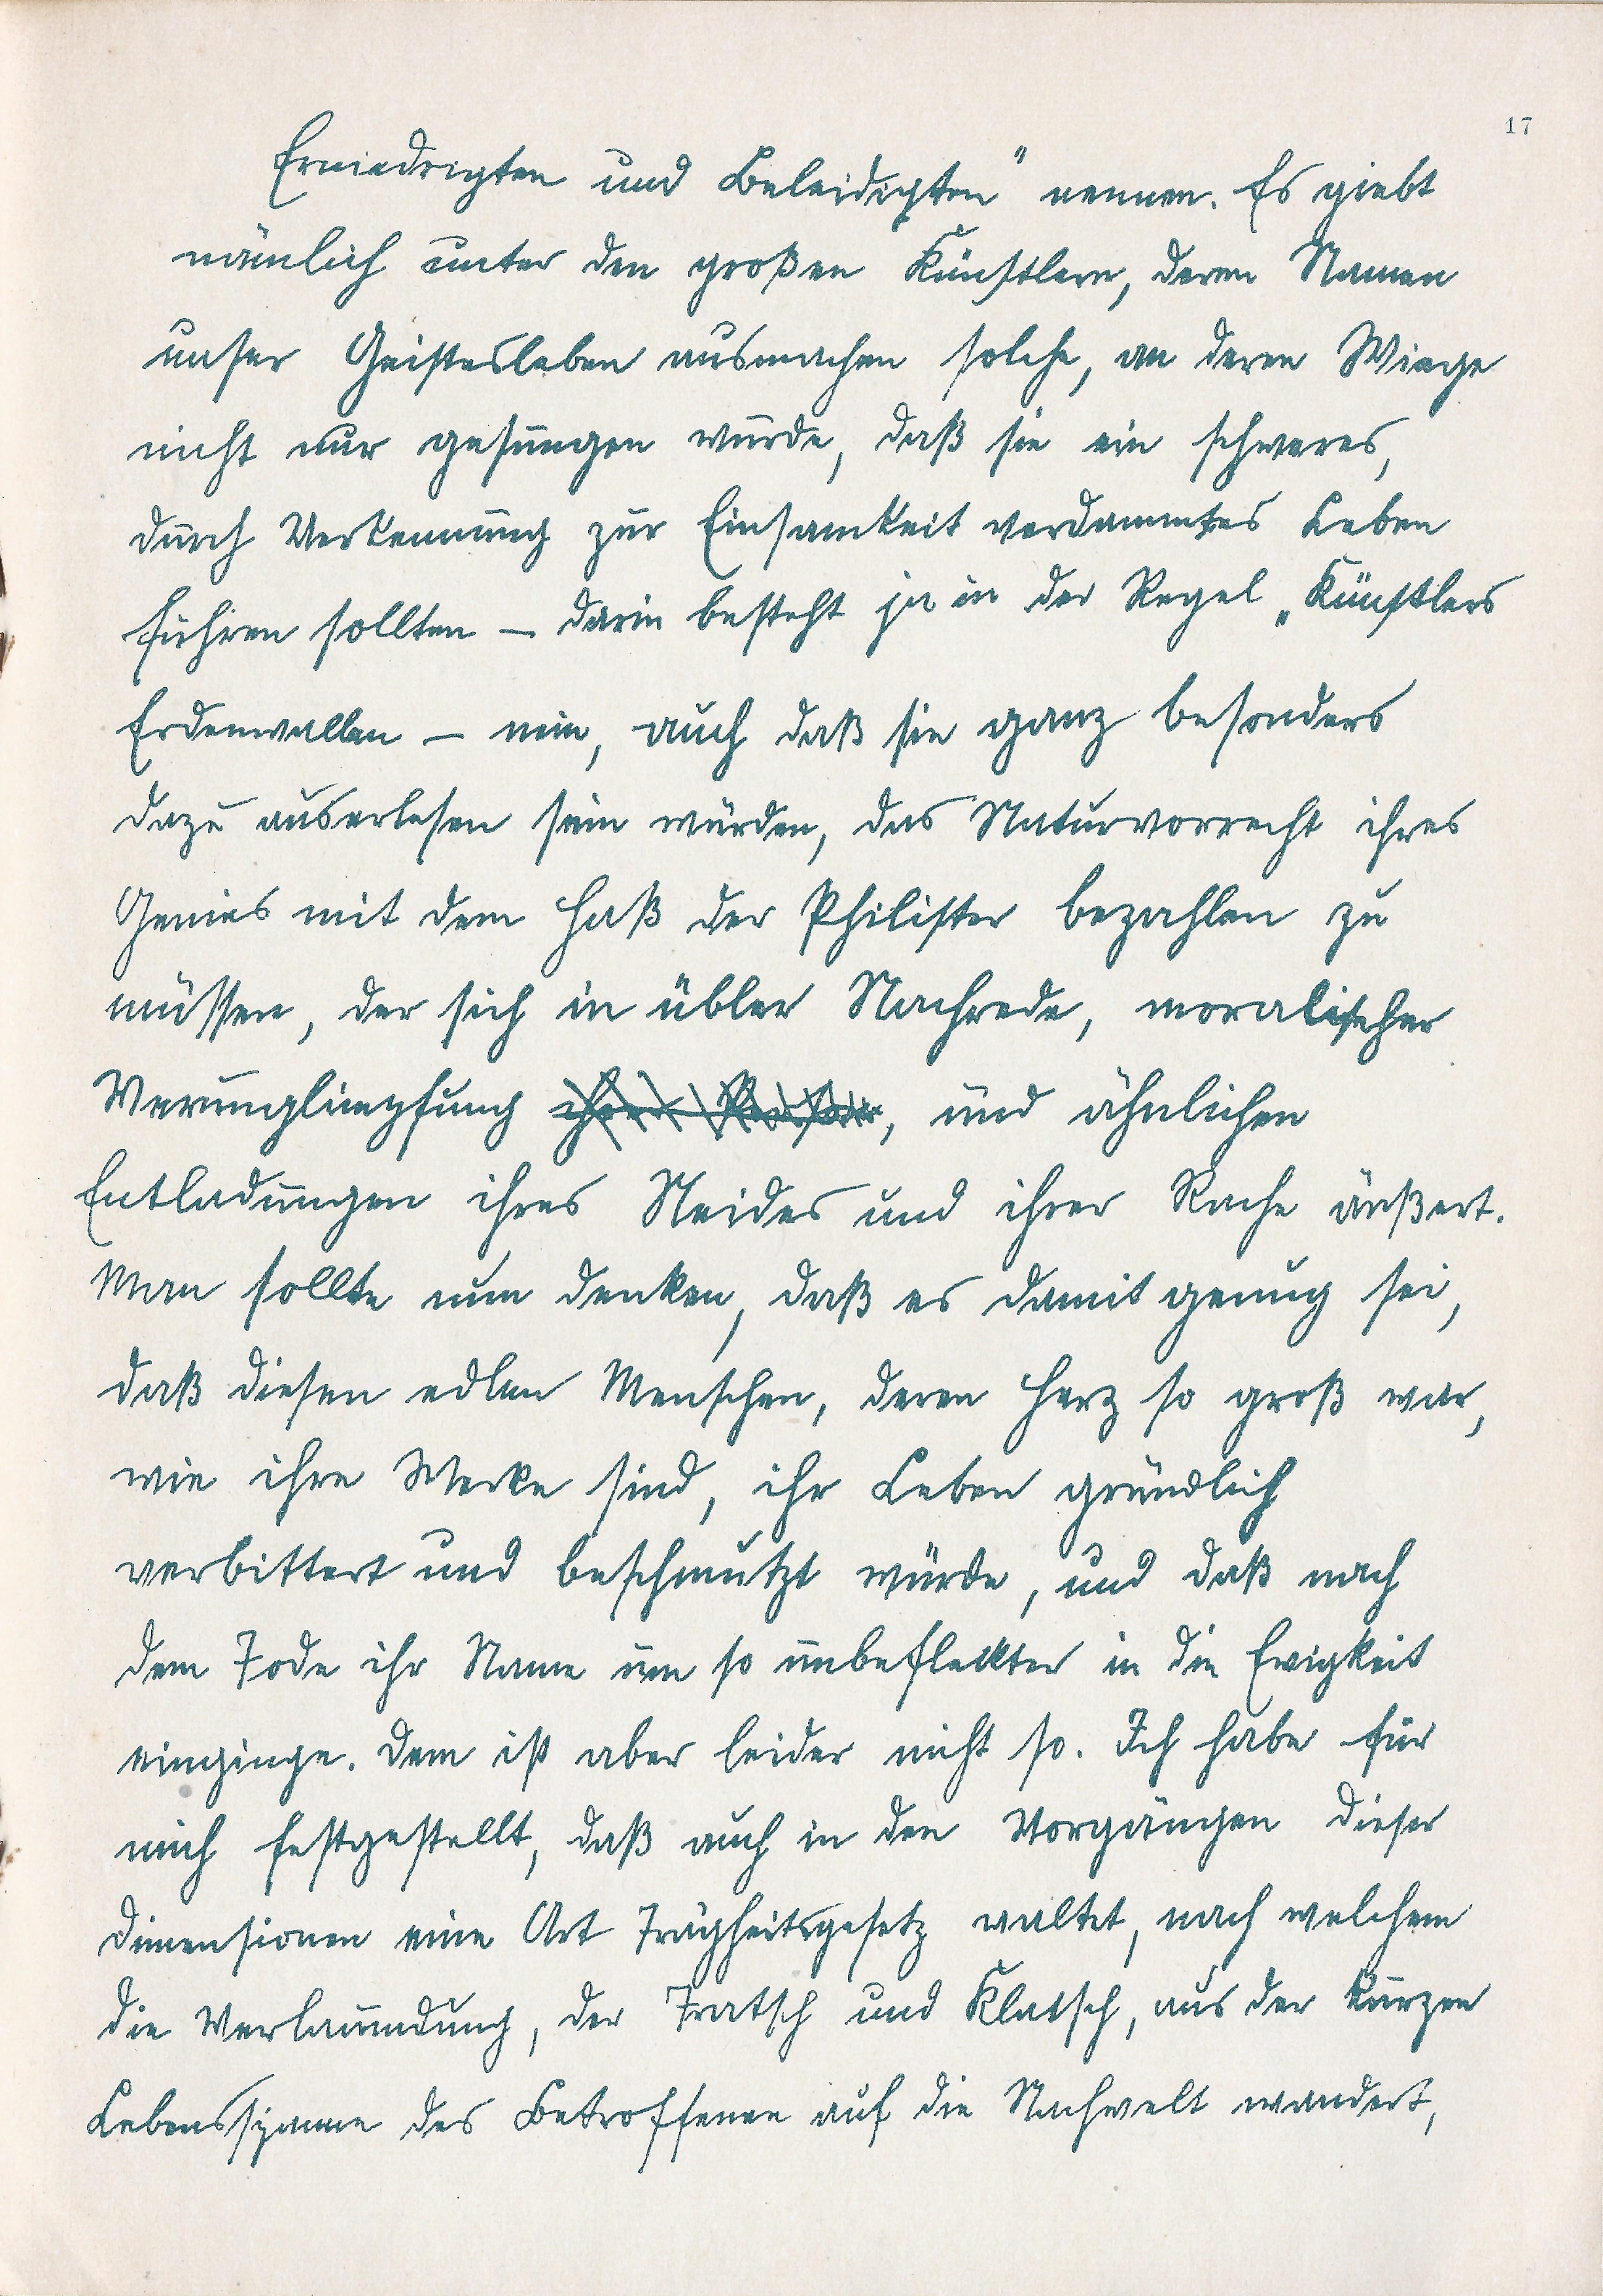 17
Erniedrigten und Beleidigten" nennen. Es giebt
nämlich unter den großen Künstlern, deren Namen
unser Geistesleben ausmachen solche, an deren Wiege
nicht nur gesungen wurde, daß sie ein schweres,
durch Verkennung zur Einsamkeit verdammtes Leben
führen sollten — darin besteht ja in der Regel „Künstlers
Erdenwallen — nein, auch daß sie ganz besonders
dazu auserlesen sein würden, das Naturvorrecht ihres
Genies mit dem Haß der Philister bezahlen zu
müssen, der sich in übler Nachrede, moralischer
Verunglimpfung, und ähnlichen
Entladungen ihres Neides und ihrer Rache äußert.
Man sollte nun denken, daß es damit genug sei,
daß diesen edlen Menschen, deren Herz so groß war,
wie ihre Werke sind, ihr Leben gründlich
verbittert und beschmutzt würde, und daß nach
dem Tode ihr Name um so unbefleckter in die Ewigkeit
einginge. Dem ist aber leider nicht so. Ich habe für
mich festgestellt, daß auch in den Vorgängen dieser
Dimensionen eine Art Trägheitsgesetz waltet, nach welchem
die Verlaumdung, der Tratsch und Klatsch, aus der kurzen
Lebensspanne des Betroffenen auf die Nachwelt wandert,